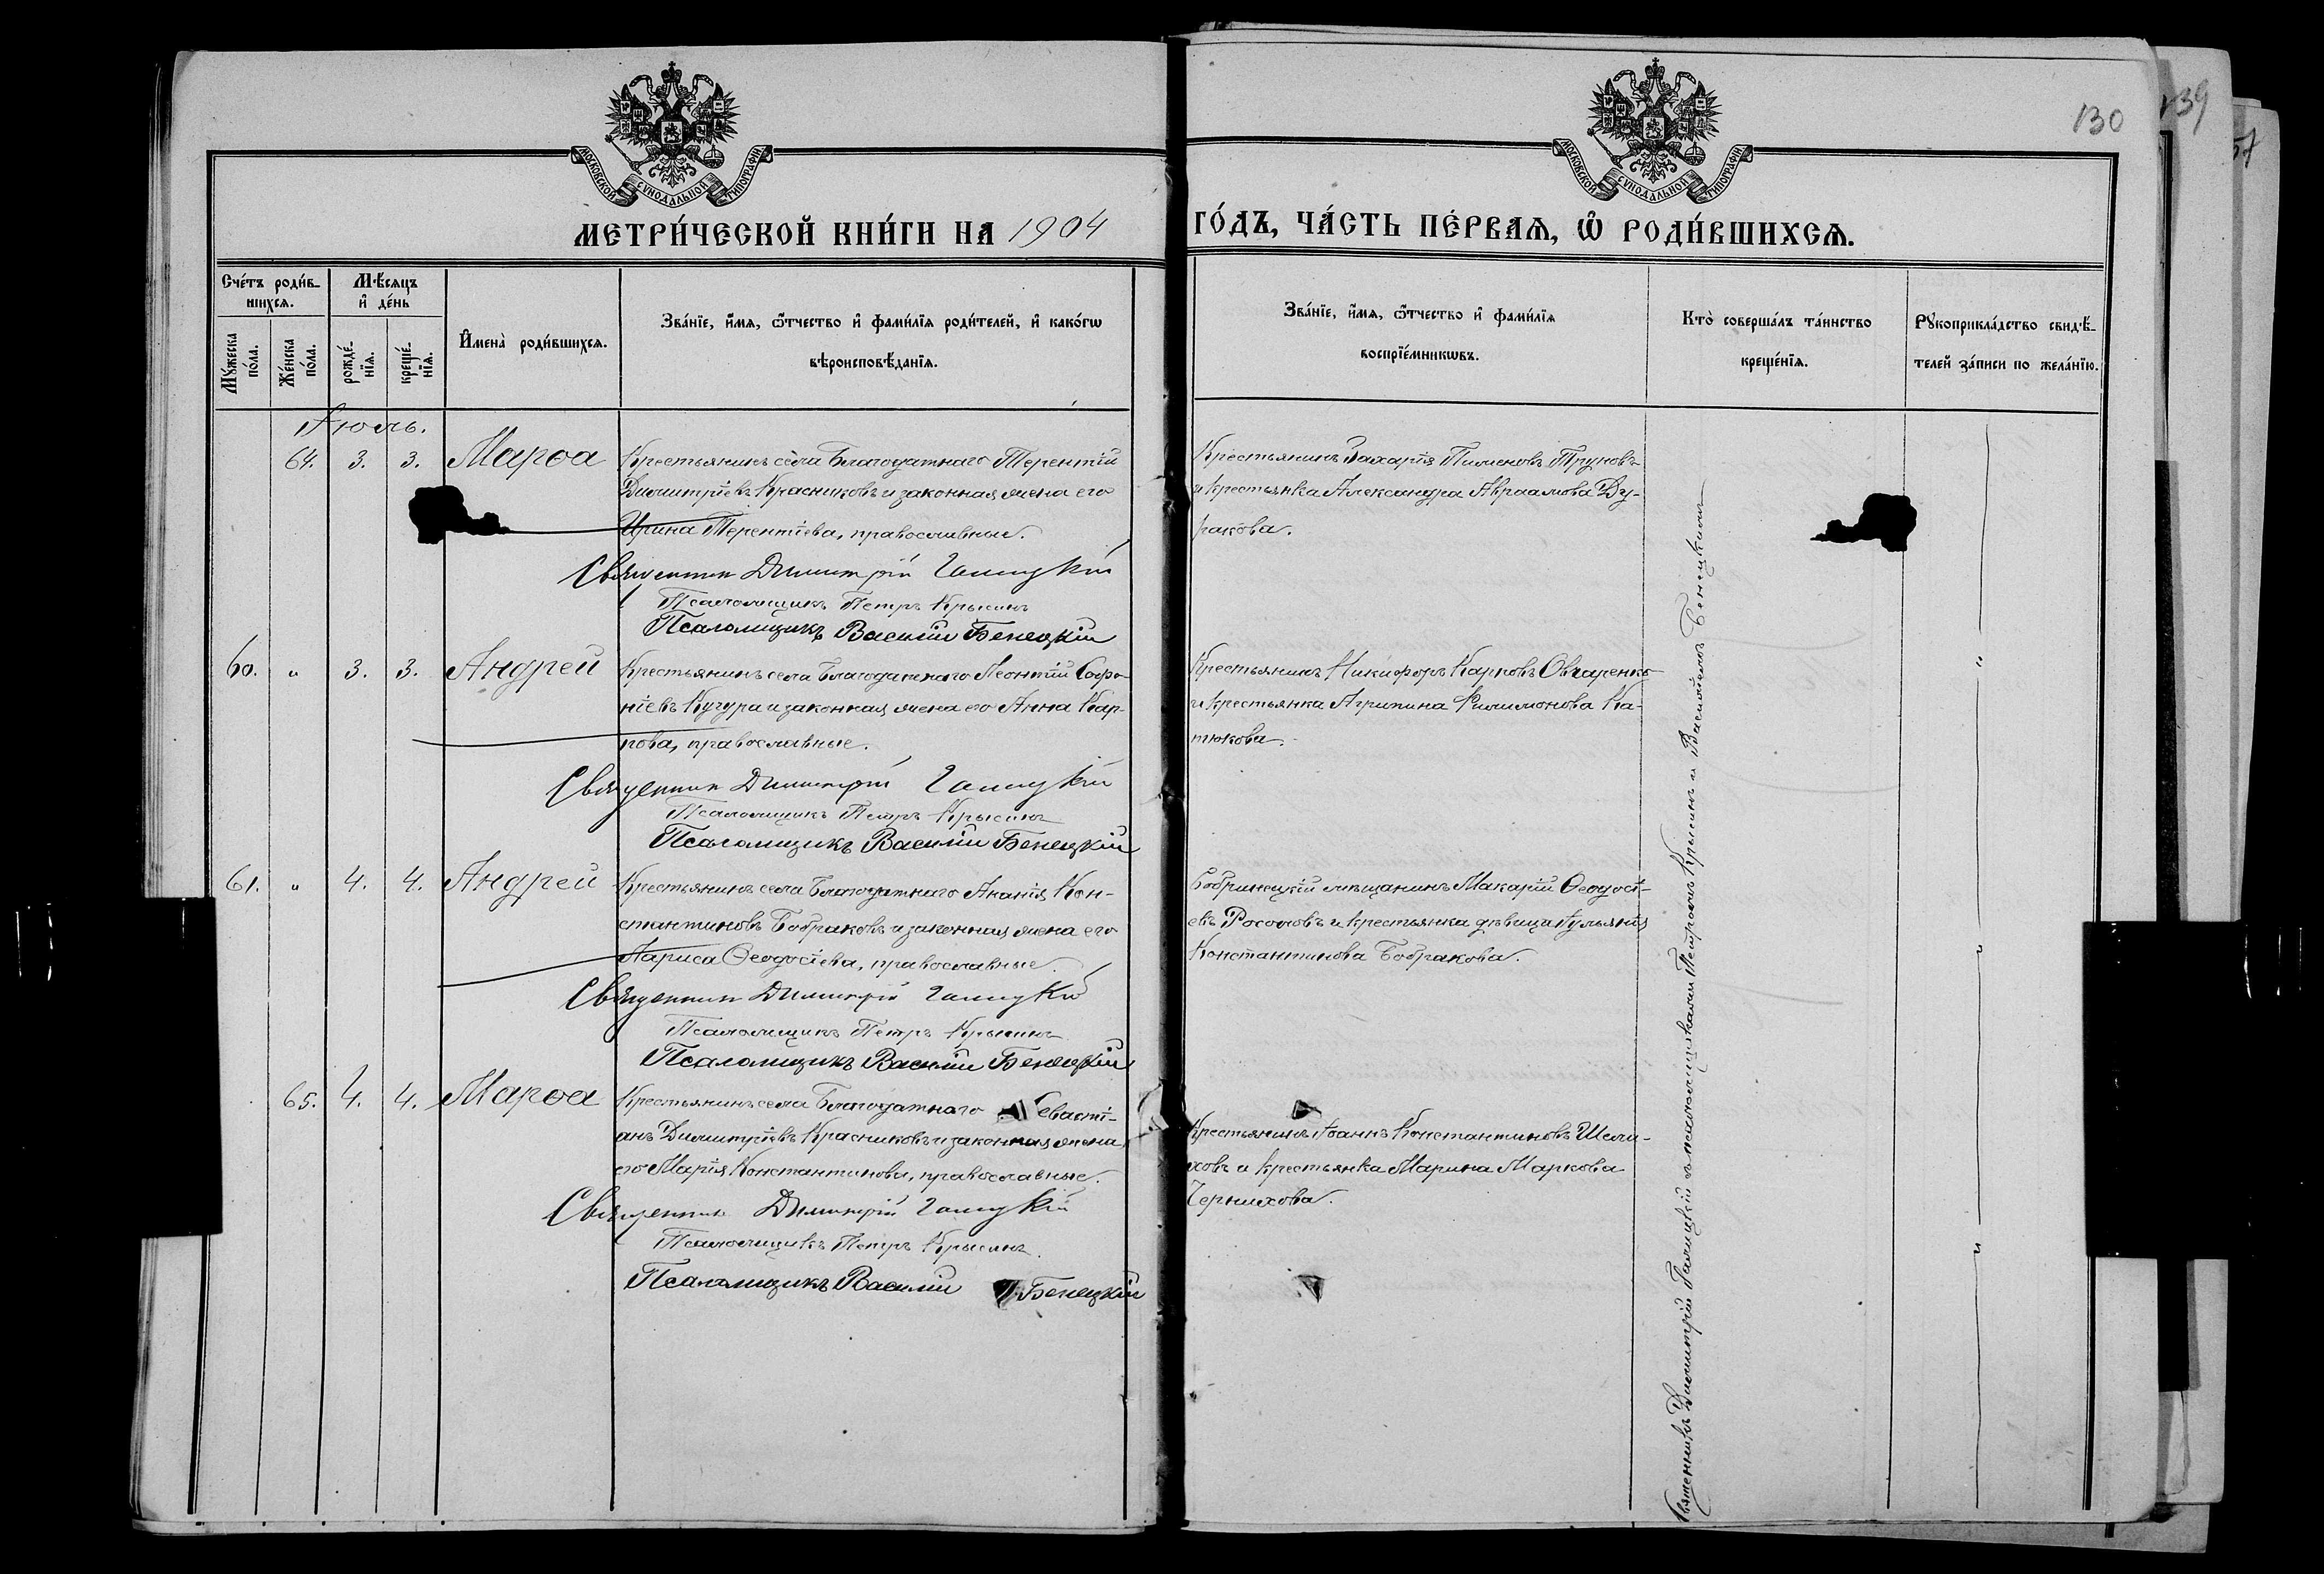 130
139
57
МОСКОВСКОЙ СУНОДАЛЬНОЙ ТИПОГРАФІИ
МОСКОВСКОЙ СУНОДАЛЬНОЙ ТИПОГРАФІИ
МЕТРИ́ЧЕСКОЙ КНИ́ГИ НА 1904 ГО́ДЪ, ЧА́СТЬ ПЕ́РВАЯ, Ѿ РОДИ́ВШИХСЯ.
Сче́тъ роди́в-
шихся.
Му́жеска по́ла.
Же́нска по́ла.
Мѣ́сяцъ и де́нь
рожде́-
нїя.
креще́-
нїя.
Имена̀ роди́вшихся.
Зва́нїе, и́мя, ѻ́тчество и фами́лїя роди́телей, и како́гѡ
вѣроисповѣ́данїя.
Зва́нїе, и́мя, ѻ́тчество и фами́лїя
воспрїе́мникѡвъ.
Кто̀ соверша́лъ та́инство
креще́нїя.
Рꙋкоприкла́дство свидѣ́-
телей за́писи по жела́нїю.
Іюль.
64. 3. 3. Марѳа
Крестьянинъ села Благодатнаго Терентій
Димитріевъ Красниковъ и законная жена его
Ирина Терентіева, православные.
Священник Димитрій Галицкій
Псаломщикъ Петръ Крысинъ
Псаломщикъ Василій Бенецкій
Крестьянинъ Захарія Пименовъ Труновъ
и крестьянка Александра Авраамова Ду-
ракова.
60. " 3. 3. Андрей
Крестьянинъ села Благодатнаго Леонтій Софро-
ніевъ Кучура и законная жена его Анна Кар-
пова, православные.
Священник Димитрій Галицкій
Псаломщикъ Петръ Крысинъ
Псаломщикъ Василій Бенецкій
Крестьянинъ Никифоръ Карповъ Овчаренко
и крестьянка Агрипина Филимонова Ка-
тюкова.
61. " 4. 4. Андрей
Крестьянинъ села Благодатнаго Ананія Кон-
стантиновъ Бобраковъ и законная жена его
Лариса Ѳеодосіева, православные.
Священник Димитрій Галицкій
Псаломщикъ Петръ Крысинъ
Псаломщикъ Василій Бенецкій
Бобринецкій мѣщанинъ Макарій Ѳеодосі-
евъ Росоловъ и крестьянка дѣвица Іульянія
Константинова Бобракова.
65. 4. 4. Марѳа
Крестьянинъ села Благодатнаго Севасті-
анъ Димитріевъ Красниковъ и законная жена
его Марія Константинова, православные.
Священник Димитрій Галицкій
Псаломщикъ Петръ Крысинъ.
Псаломщикъ Василій Бенецкій
Крестьянинъ Іоаннъ Константиновъ Шели-
ховъ и крестьянка Марина Маркова
Черныхова.
Священникъ Димитрій Галицкій съ псаломщиками Петромъ Крысинъ и Василіемъ Бенецкимъ